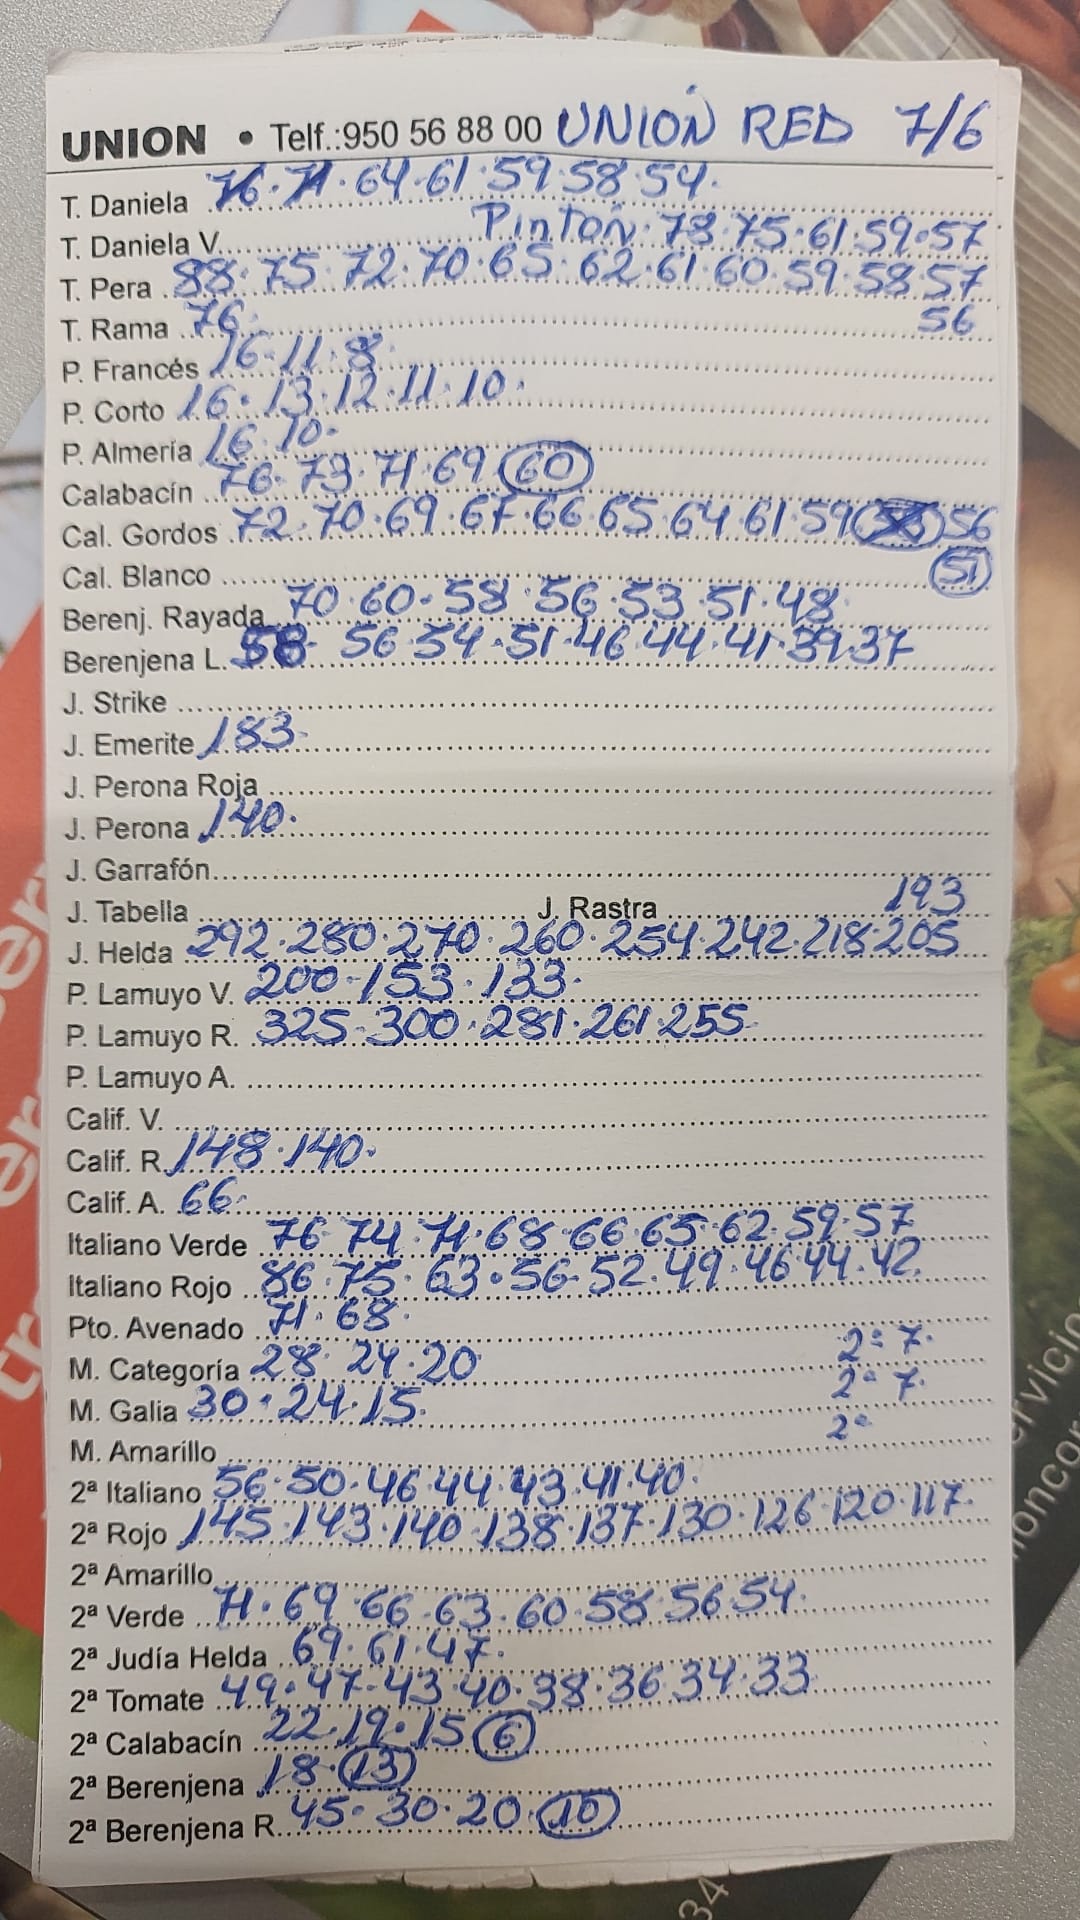 UNION • Telf.:950 56 88 00 UNIÓN RED 7/6
T. Daniela 76·71·64·61·59·58·54·
T. Daniela V. Pinton·78·75·61·59·57
T. Pera 88·75·72·70·65·62·61·60·59·58·57
T. Rama 76· 56
P. Francés 16·11·8·
P. Corto 16·13·12·11·10·
P. Almería 16·10·
Calabacín 76·73·71·69 60
Cal. Gordos 72·70·69·67·66·65·64·61·59 56
Cal. Blanco 51
Berenj. Rayada 70·60·58·56·53·51·48·
Berenjena L. 58·56·54·51·46·44·41·39·37
J. Strike
J. Emerite 183·
J. Perona Roja
J. Perona 140·
J. Garrafón
J. Tabella J. Rastra 193
J. Helda 292·280·270·260·254·242·218·205
P. Lamuyo V. 200·153·133·
P. Lamuyo R. 325·300·281·261·255
P. Lamuyo A.
Calif. V.
Calif. R. 148·140·
Calif. A. 66·
Italiano Verde 76·74·71·68·66·65·62·59·57
Italiano Rojo 86·75·63·56·52·49·46·44·42
Pto. Avenado 71·68·
M. Categoría 28·24·20 2ª 7·
M. Galia 30·24·15· 2ª 7·
M. Amarillo 2ª
2ª Italiano 56·50·46·44·43·41·40·
2ª Rojo 145·143·140·138·137·130·126·120·117·
2ª Amarillo
2ª Verde 71·69·66·63·60·58·56·54·
2ª Judía Helda 69·61·47·
2ª Tomate 49·47·43·40·38·36·34·33
2ª Calabacín 22·19·15 6
2ª Berenjena 18·13
2ª Berenjena R. 45·30·20·10
34